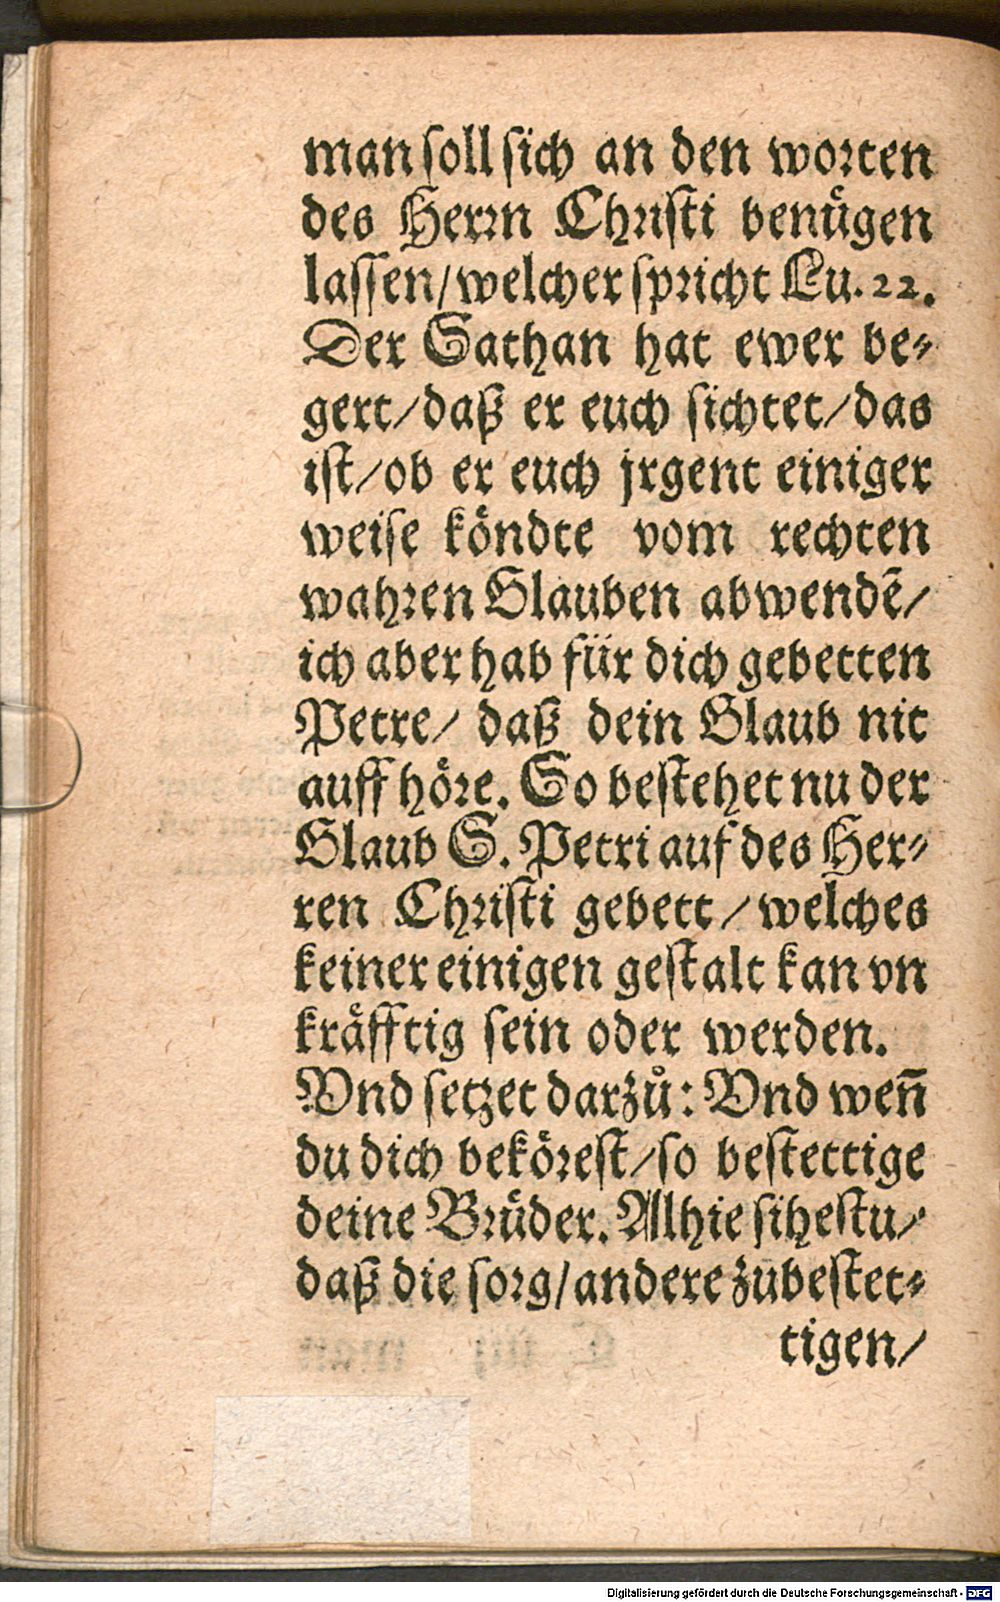 man soll sich an den worten
des Herrn Christi benügen
lassen/ welcher spricht Lu. 22.
Der Sathan hat ewer be-
gert/ daß er euch sichtet/ das
ist/ ob er euch jrgent einiger
weise köndte vom rechten
wahren Glauben abwendẽ/
ich aber hab für dich gebetten
Petre/ daß dein Glaub nit
auff höre. So bestehet nu der
Glaub S. Petri auf des Her-
ren Christi gebett/ welches
keiner einigen gestalt kan vn
kräfftig sein oder werden.
Vnd setzet darzů: Vnd weñ
du dich bekörest/ so bestettige
deine Brüder. Alhie sihestu/
daß die sorg/ andere zubestet-
tigen/
Digitalisierung gefördert durch die Deutsche Forschungsgemeinschaft - DFG